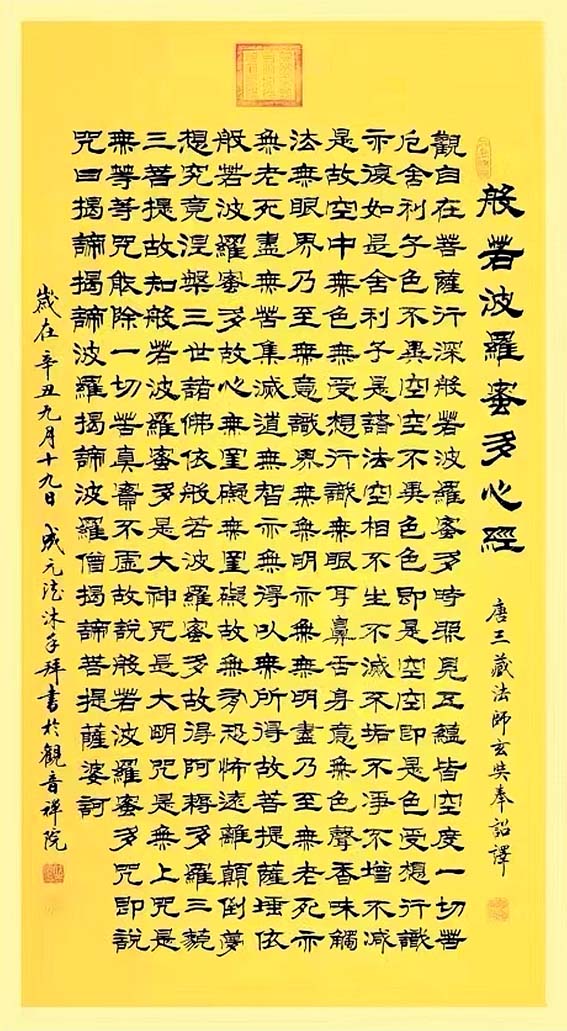 般若波羅蜜多心經
唐三藏法師玄奘奉詔譯
觀自在菩薩行深般若波羅蜜多時照見五蘊皆空度一切苦
厄舍利子色不異空空不異色色即是空空即是色受想行識
亦復如是舍利子是諸法空相不生不滅不垢不淨不增不減
是故空中無色無受想行識無眼耳鼻舌身意無色聲香味觸
法無眼界乃至無意識界無無明亦無無明盡乃至無老死亦
無老死盡無苦集滅道無智亦無得以無所得故菩提薩埵依
般若波羅蜜多故心無罣礙無罣礙故無有恐怖遠離顛倒夢
想究竟涅槃三世諸佛依般若波羅蜜多故得阿耨多羅三藐
三菩提故知般若波羅蜜多是大神咒是大明咒是無上咒是
無等等咒能除一切苦真實不虛故說般若波羅蜜多咒即說
咒曰揭諦揭諦波羅揭諦波羅僧揭諦菩提薩婆訶
歲在辛丑九月十九日 成元法沐手拜書於觀音禪院